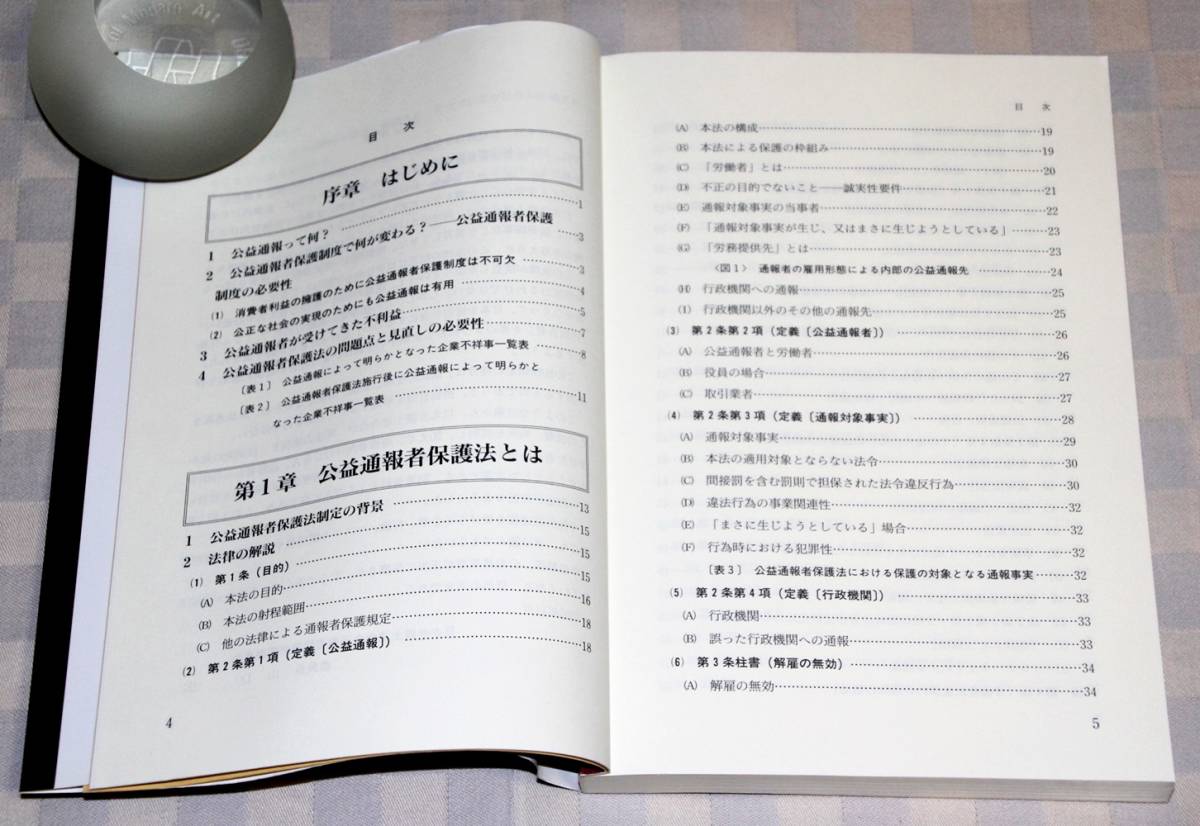 of Modern Art
目 次
序章 はじめに
1 公益通報って何？ ……1
2 公益通報者保護制度で何が変わる？──公益通報者保護
制度の必要性 ……3
(1) 消費者利益の擁護のために公益通報者保護制度は不可欠 ……3
(2) 公正な社会の実現のためにも公益通報は有用 ……4
3 公益通報者が受けてきた不利益……5
4 公益通報者保護法の問題点と見直しの必要性……7
〔表1〕 公益通報によって明らかとなった企業不祥事一覧表 ……8
〔表2〕 公益通報者保護法施行後に公益通報によって明らかと
なった企業不祥事一覧表 ……11
第1章 公益通報者保護法とは
1 公益通報者保護法制定の背景 ……13
2 法律の解説 ……15
(1) 第1条（目的）……15
(A) 本法の目的……15
(B) 本法の射程範囲……16
(C) 他の法律による通報者保護規定……18
(2) 第2条第1項（定義〔公益通報〕）……18
4
目 次
(A) 本法の構成……19
(B) 本法による保護の枠組み……19
(C) 「労働者」とは……20
(D) 不正の目的でないこと──誠実性要件……21
(E) 通報対象事実の当事者……22
(F) 「通報対象事実が生じ、又はまさに生じようとしている」……23
(G) 「労務提供先」とは……23
〈図1〉 通報者の雇用形態による内部の公益通報先 ……24
(H) 行政機関への通報……25
(I) 行政機関以外のその他の通報先……25
(3) 第2条第2項（定義〔公益通報者〕）……26
(A) 公益通報者と労働者……26
(B) 役員の場合……27
(C) 取引業者……27
(4) 第2条第3項（定義〔通報対象事実〕）……28
(A) 通報対象事実……29
(B) 本法の適用対象とならない法令……30
(C) 間接罰を含む罰則で担保された法令違反行為……30
(D) 違法行為の事業関連性……32
(E) 「まさに生じようとしている」場合……32
(F) 行為時における犯罪性……32
〔表3〕 公益通報者保護法における保護の対象となる通報事実……32
(5) 第2条第4項（定義〔行政機関〕）……33
(A) 行政機関……33
(B) 誤った行政機関への通報……33
(6) 第3条柱書（解雇の無効）……34
(A) 解雇の無効……34
5